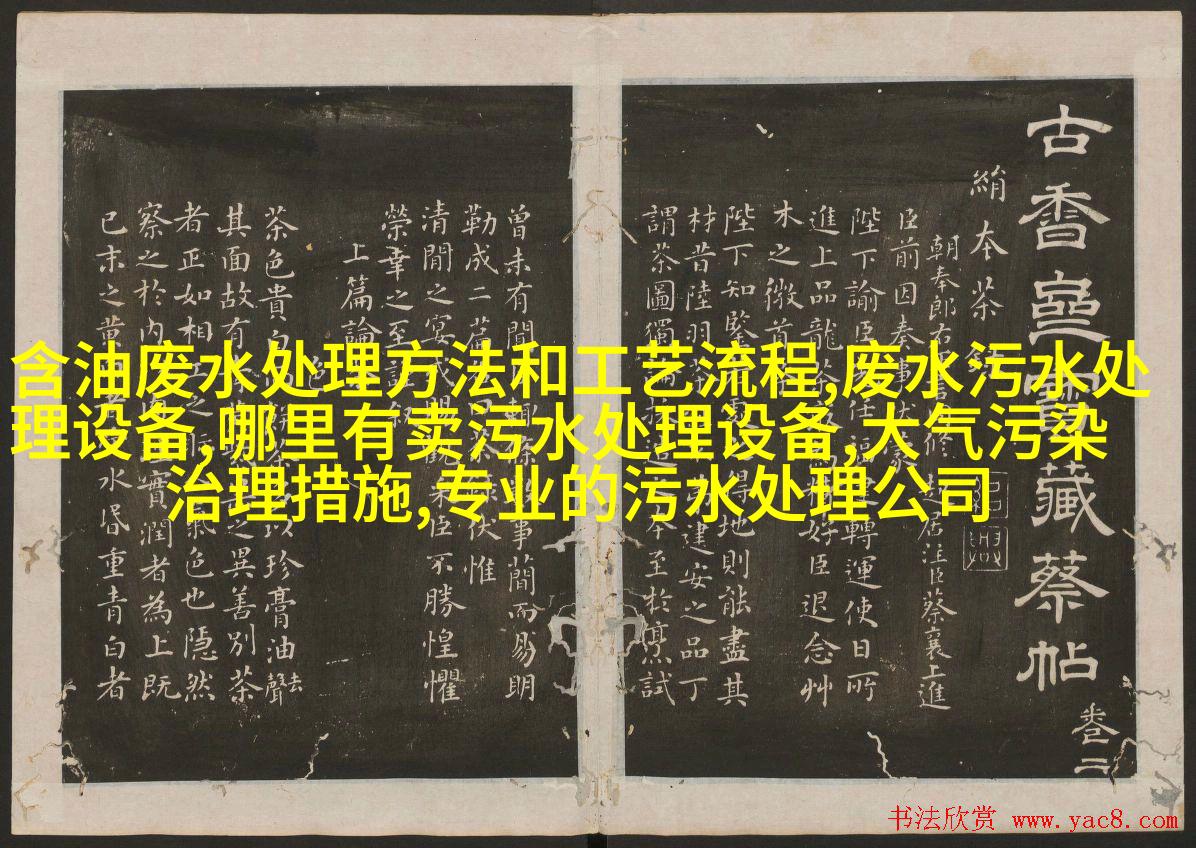 含油废水处理方法和工艺流程,废水污水处
理设备,哪里有卖污水处理设备,大气污染
治理措施,专业的污水处理公司
古香齋寶藏蔡帖
卷二
絹本茶
朝奉郎右修起居注臣蔡襄上進
臣前因奏事伏蒙
陛下諭臣任福建轉運使日所
進上品龍茶為好臣退念艸
木之微首
陛下知鑒若處得地則能盡其
材昔陸羽茶建安之品丁
謂茶圖獨論本至於烹試
曾未有聞輒條事簡而易明
勒成二篇曰茶錄伏惟
清閒之宴或觀采臣不勝惶懼
榮幸之至謹叙
上篇論茶
色
茶色貴白茶以珍膏油去聲
其面故有之異善別茶
者正如相工之氣色也隱然
察之於內實潤者為上既
已末之黃白水昏重青白者
书法欣赏 www.yac8.com